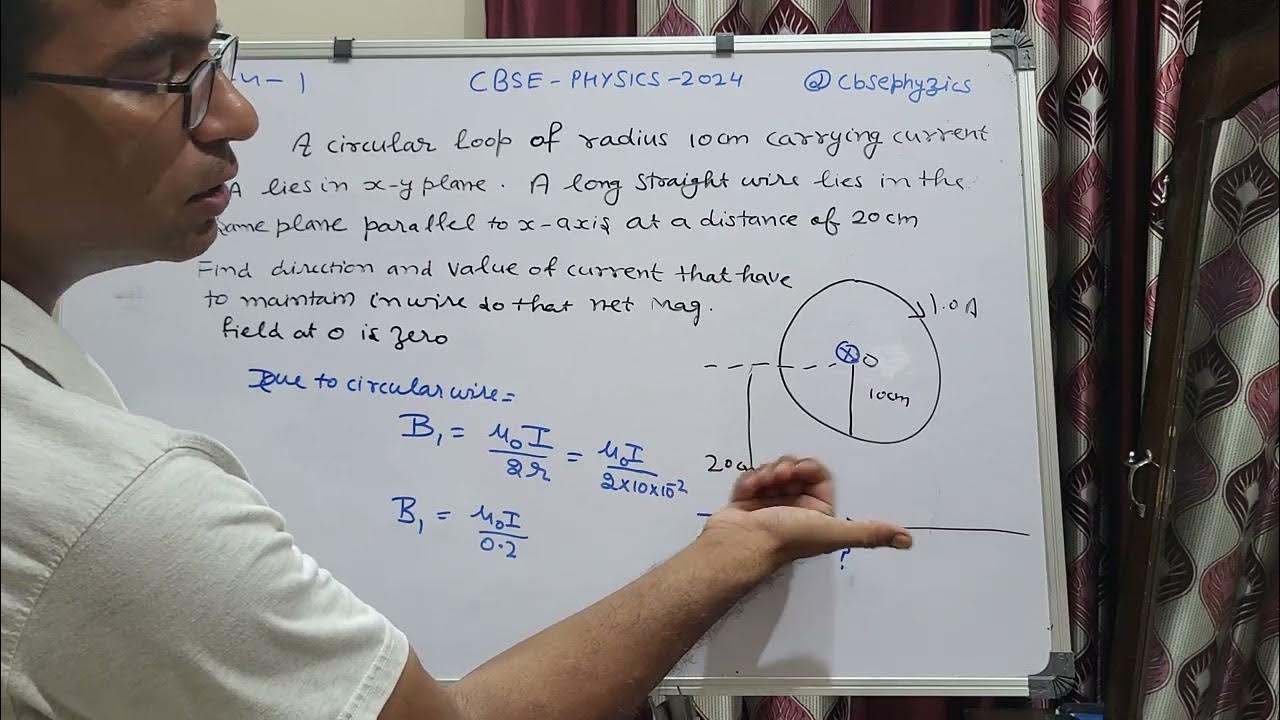 CBSE - PHYSICS - 2024
@cbsephyzics
A circular loop of radius 10cm carrying current
A lies in x-y plane. A long straight wire lies in the
same plane parallel to x-axis at a distance of 20cm
Find direction and value of current that have
to maintain in wire so that net mag.
field at O is zero
1.0A
O
10cm
20c
?
Due to circular wire =
B₁ = μ₀I/2r = μ₀I/2×10×10⁻²
B₁ = μ₀I/0.2